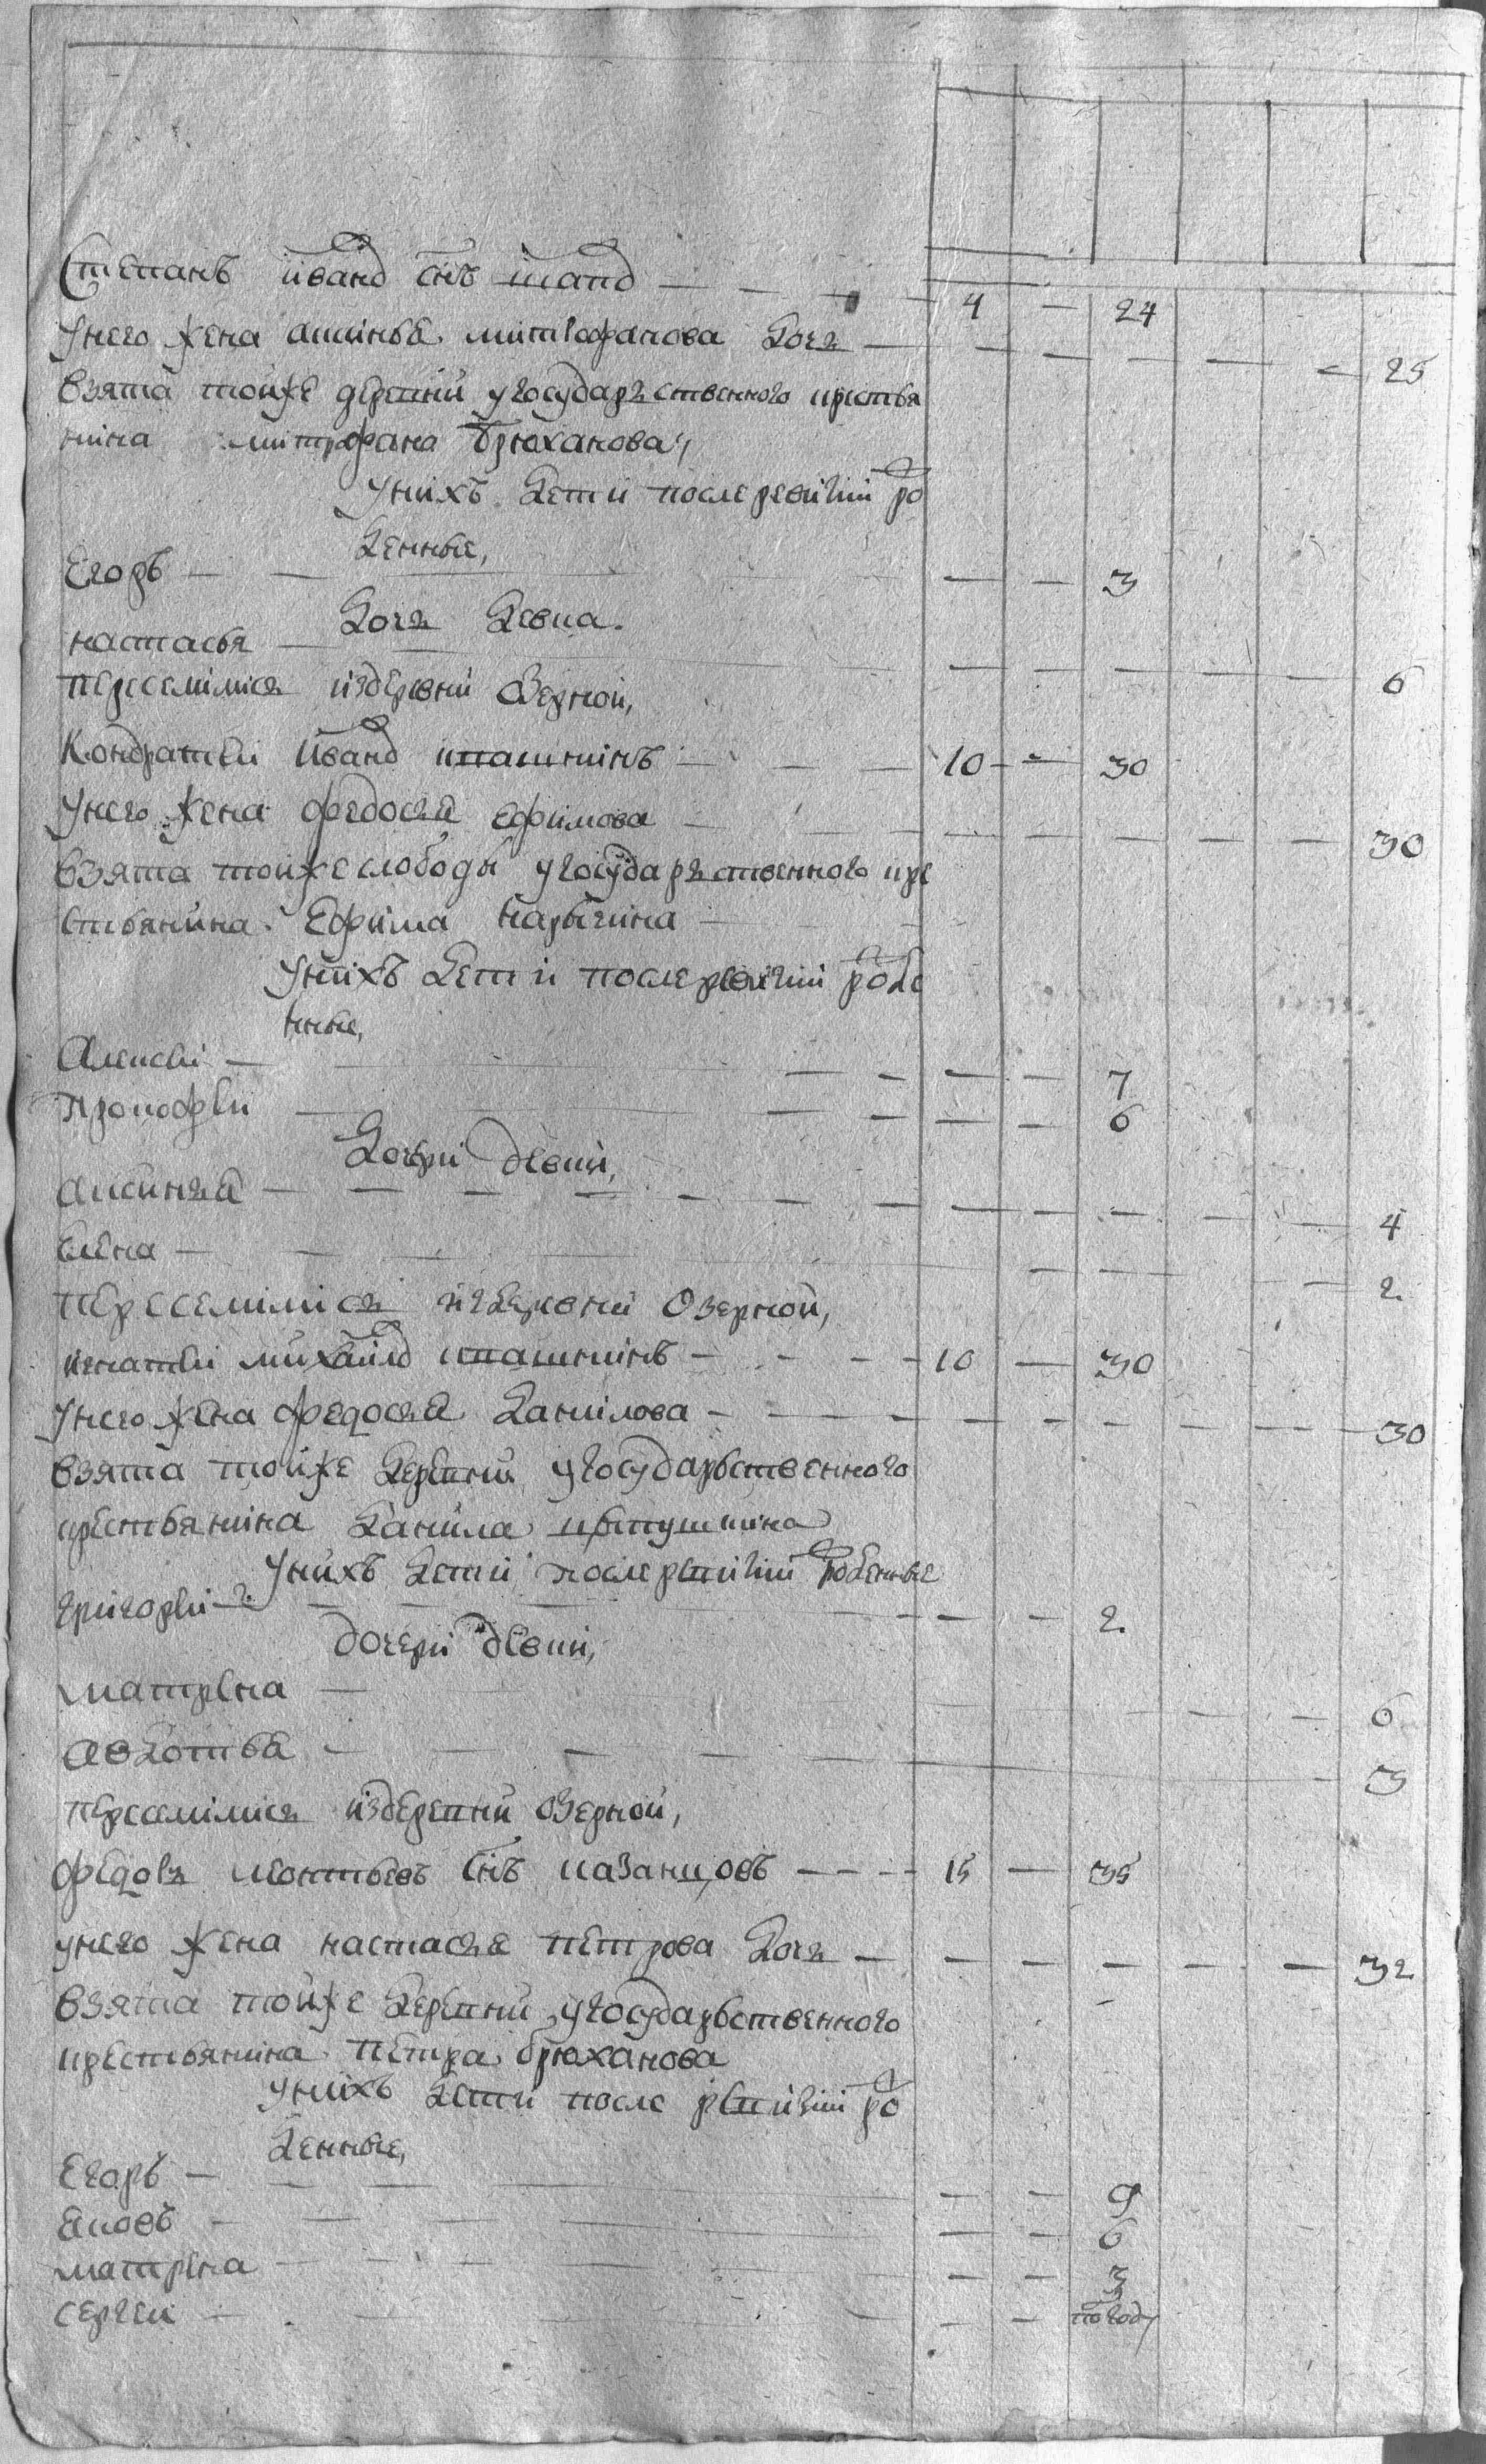 Степанъ Иванов снъ — — — 4 — 24
Унего жена аксинья митрофанова дочь — — — — — — 25
Взята тойже деревни угосударственного крестья
нина митрофана Брюханова,
Унихъ дети после ревизии ро
денные,
Егоръ — — — — 3
дочь девка.
настасья — — — — — — 6
переселился издеревни Озерной,
Кондратей Иванов квашнинъ — — — 10 — 30
Унего жена федосья ефимова — — — — — — 30
Взята тойже слободы угосударственного кре
стьянина Ефима Нарычина —
Унихъ дети после ревизии роде
нные,
Алексей — — — — — 7
Прокофей — — — — — 6
дочери девки,
Аксинья — — — — — — — — 4
Елена — — — — — — 2.
переселился издеревни Озерной,
игнатей михайлов квашнинъ — — — 10 — 30
Унего жена федосья данилова — — — — — — — 30
Взята тойже деревни угосударственного
крестьянина данила
Унихъ дети после ревизии роденные
григорей — — — — — 2.
дочери девки,
матрена — — — — 6
Авдотья — — — — — 3
переселился издеревни Озерной,
федоръ леонтьевъ снъ казанцовъ — — — 15 — 35
унего жена настасья петрова дочь — — — — — — 32
взята тойже деревни угосударственного
крестьянина петра брюханова
Унихъ дети после ревизии ро
денные,
Егоръ — — — — — 9
Яковъ — — — — — 6
матрена — — — — — 3
Сергей — — — — — по году